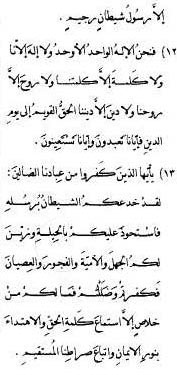 إلا رسول شيطان رجيم.
(١٢) فنحن الإله الواحد الأوحد ولا إله إلا أنا
ولا كلمة إلا كلمتنا ولا روح إلا
روحنا ولا دين إلا ديننا الحق القويم إلى يوم
الدين فإيانا تعبدون وإيانا تستعينون.
(١٣) يأيها الذين كفروا من عبادنا الضالين:
لقد خدعكم الشيطان برسله
فاستحوذ عليكم بالحيلة وزين
لكم الجهل والأمية والفجور والعصيان
فكفرتم وضللتم فما لكم من
خلاص إلا استماع كلمة الحق والاهتداء
بنور الإيمان واتباع صراطنا المستقيم.